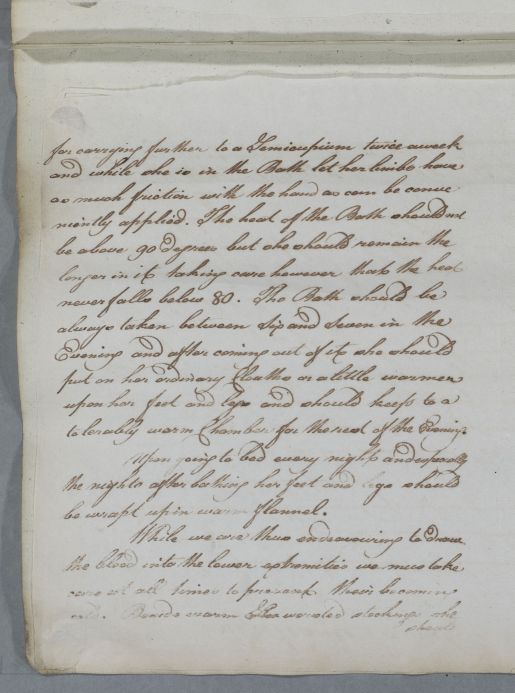 for carrying further to a Semicupium twice aweek
and while she is in the Bath let her limbs have
as much friction with the hand as can be conve
niently applied. The heat of the Bath should not
be above 90 degrees but she should remain the
longer in it taking care however that the heat
never falls below 80. The Bath should be
always taken between Six and Seven in the
Evening and after coming out of it she should
put on her ordinary Cloaths or a little warmer
upon her feet and legs and should keep to a
tolerably warm Chamber for the rest of the Evening.
Upon going to bed every night and especially
the nights after bathing her feet and legs should
be wrapt up in warm flannel.
While we are thus endeavouring to draw
the blood into the lower extremities we must take
care at all times to prevent their becoming
cold. Beside warm worsted stockings she
should